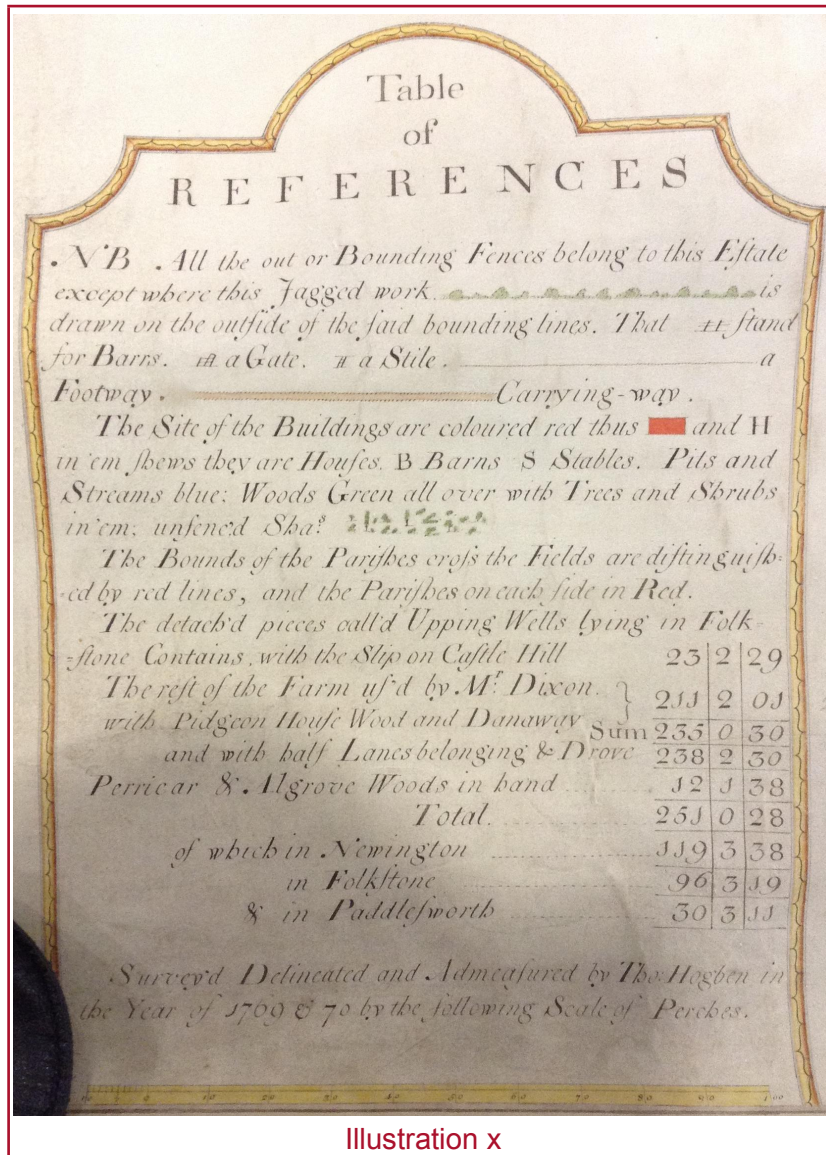 Table
of
REFERENCES
NB. All the out or Bounding Fences belong to this Eſtate
except where this Jagged work is
drawn on the outſide of the ſaid bounding lines. That ſtand
for Barrs. a Gate. a Stile. a
Footway. Carrying-way.
The Site of the Buildings are coloured red thus and H
in'em ſhews they are Houſes. B Barns S Stables. Pits and
Streams blue: Woods Green all over with Trees and Shrubs
in'em; unfenc'd Shas
The Bounds of the Pariſhes croſs the Fields are diſtinguiſh-
-ed by red lines, and the Pariſhes on each ſide in Red.
The detach'd pieces call'd Upping Wells lying in Folk-
-ſtone Contains, with the Slip on Caſtle Hill 23 2 29
The reſt of the Farm uſ'd by Mr. Dixon. 211 2 01
with Pidgeon Houſe Wood and Danaway Sum 235 0 30
and with half Lanes belonging & Drove 238 2 30
Perricar & Algrove Woods in hand 12 1 38
Total 251 0 28
of which in Newington 119 3 38
in Folkſtone 96 3 19
& in Paddleſworth 30 3 11
Survey'd Delineated and Admeaſured by Tho: Hogben in
the Year of 1769 & 70 by the following Scale of Perches.
10 5 0 10 20 30 40 50 60 70 80 90 100
Illustration x